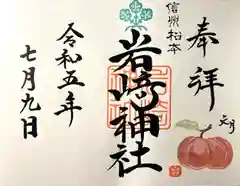 奉拝
信州松本
岩崎神社
令和五年
七月九日